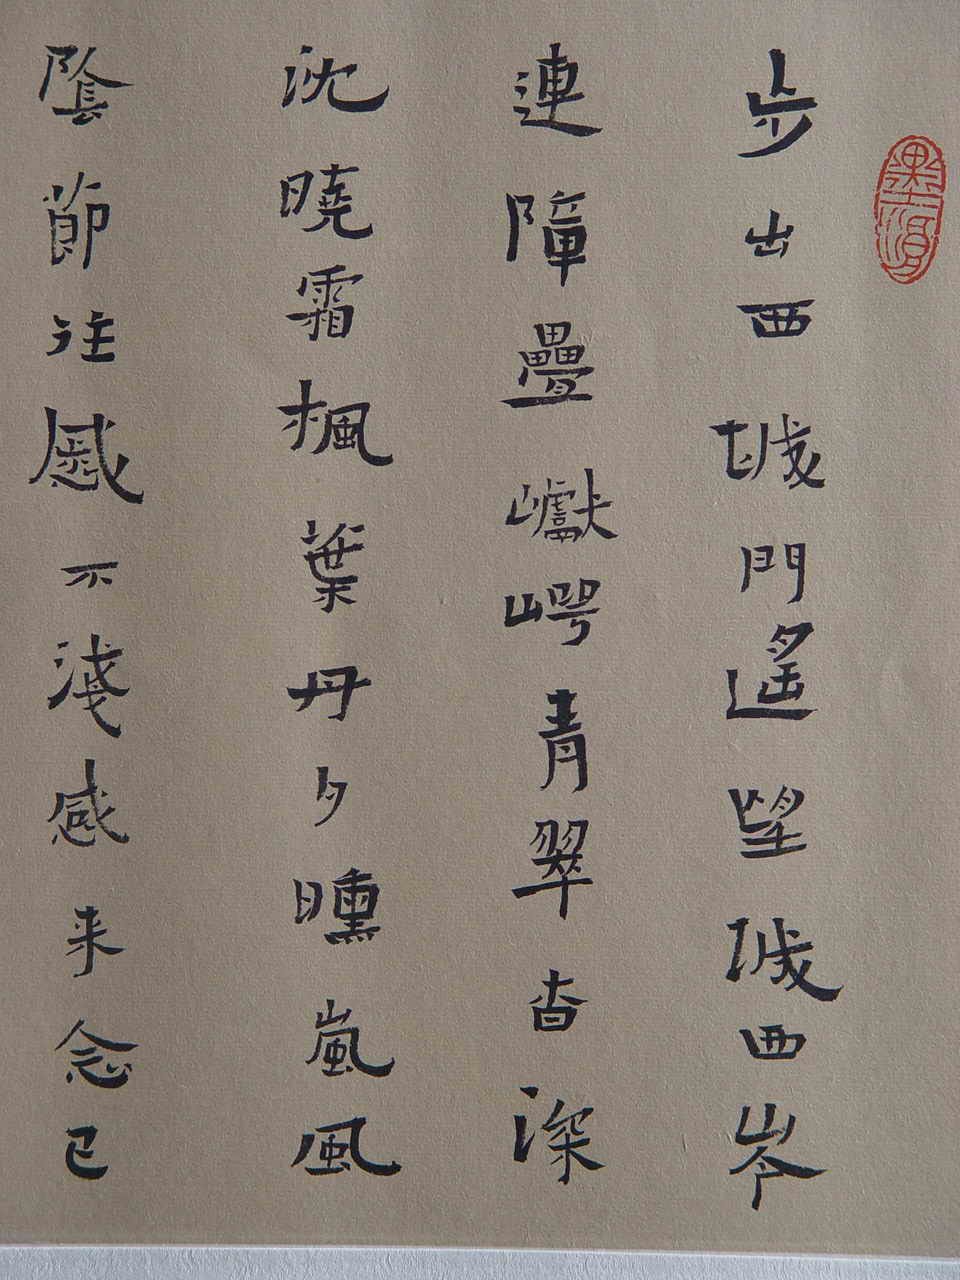 步出西城門遙望城西岑
連障疊巘崿青翠杳深
沈曉霜楓葉丹夕曛嵐風
陰節往慼不淺感来念已